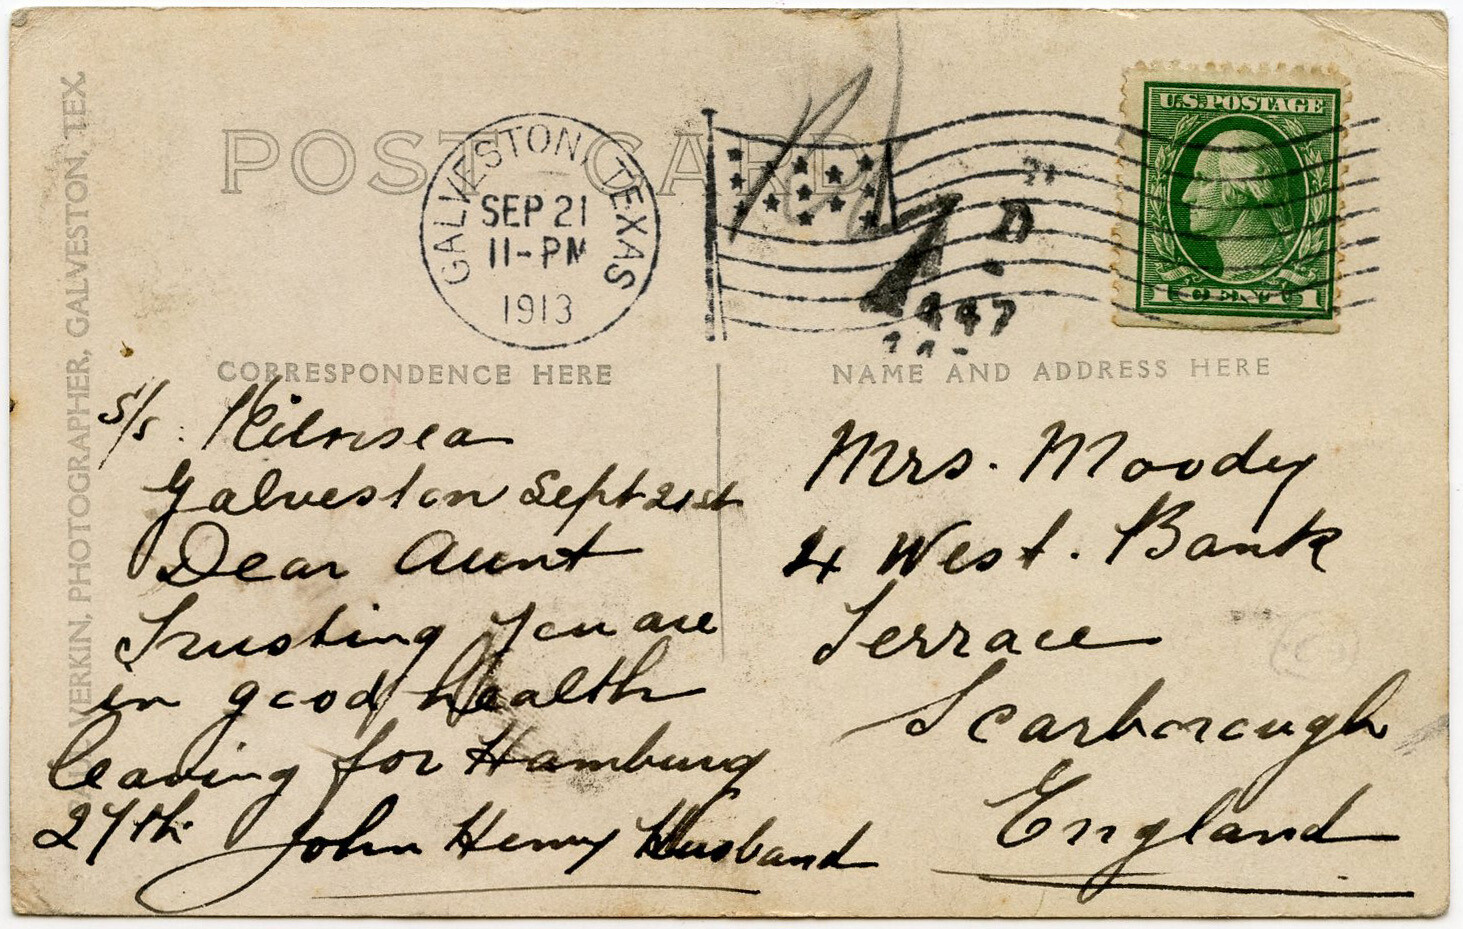 POST CARD
GALVESTON, TEXAS
SEP 21
11-PM
1913
U.S. POSTAGE
1 CENT 1
D
447
CORRESPONDENCE HERE
NAME AND ADDRESS HERE
VERKIN, PHOTOGRAPHER, GALVESTON, TEX.
S/S. Kilnsea
Galveston Sept 21st
Dear Aunt
Trusting you are
in good health
leaving for Hamburg
27th. John Henry Husband
Mrs. Moody
4 West. Bank
Terrace
Scarborough
England